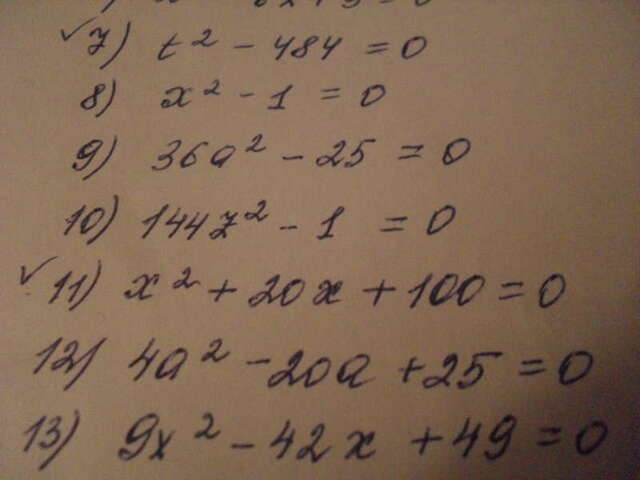 7) t² - 484 = 0
8) x² - 1 = 0
9) 36a² - 25 = 0
10) 144z² - 1 = 0
11) x² + 20x + 100 = 0
12) 4a² - 20a + 25 = 0
13) 9x² - 42x + 49 = 0